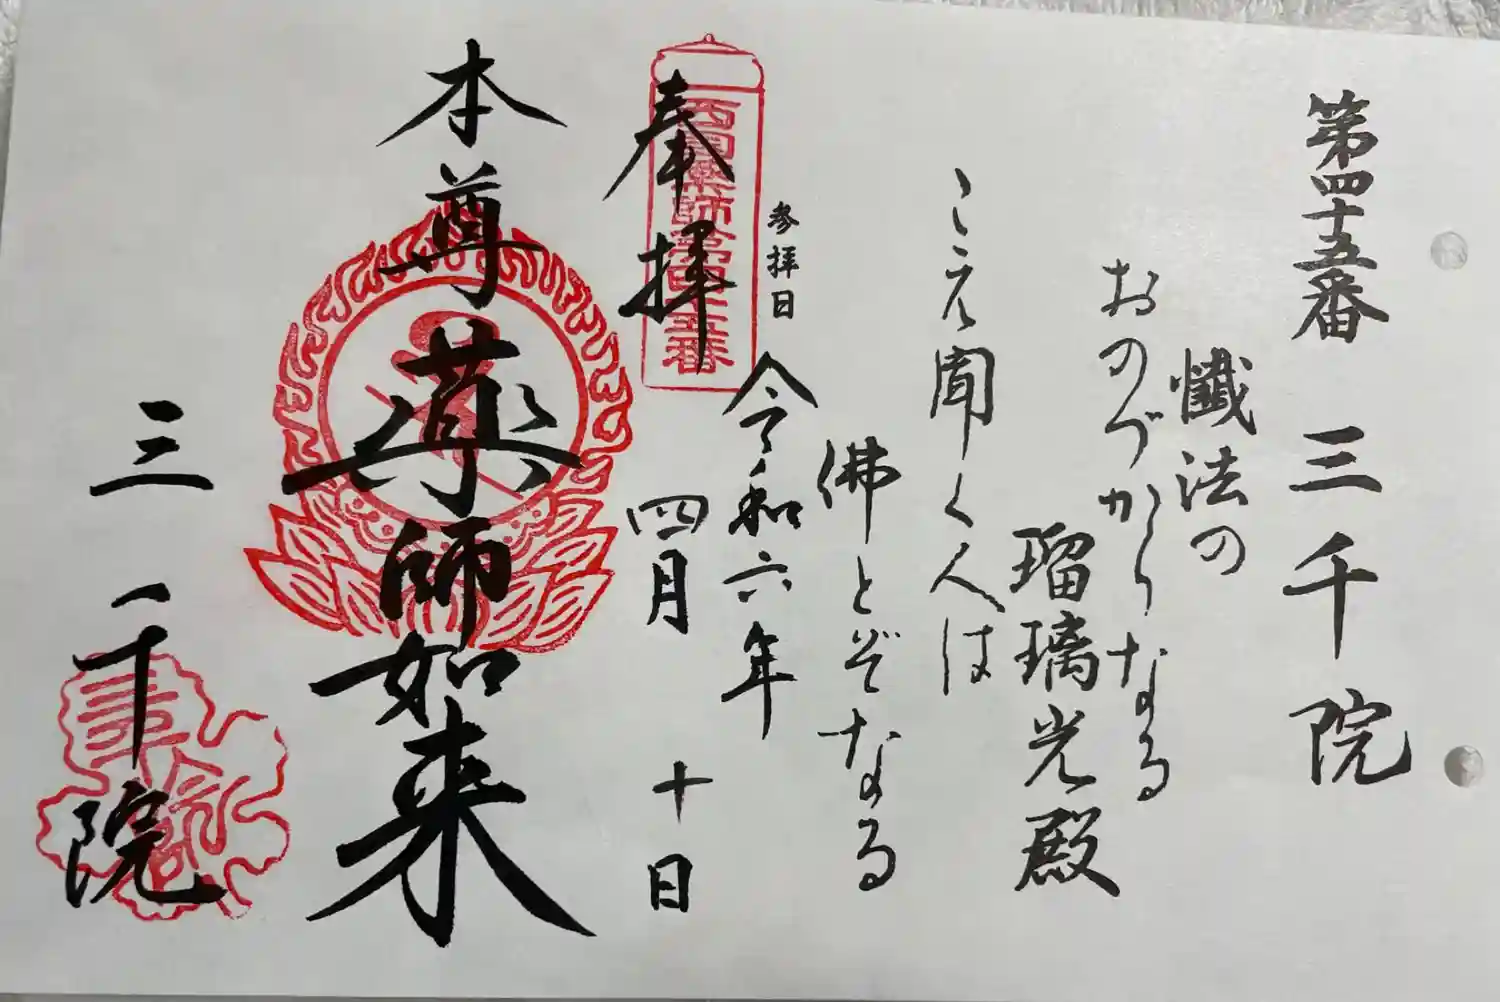 第四十五番 三千院
懺法の
おのづからなる
瑠璃光殿
こえ聞く人は
佛とぞなる
参拝日
令和六年
四月 十日
奉拝
西国薬師第四十五番
本尊 薬師如来
三千院